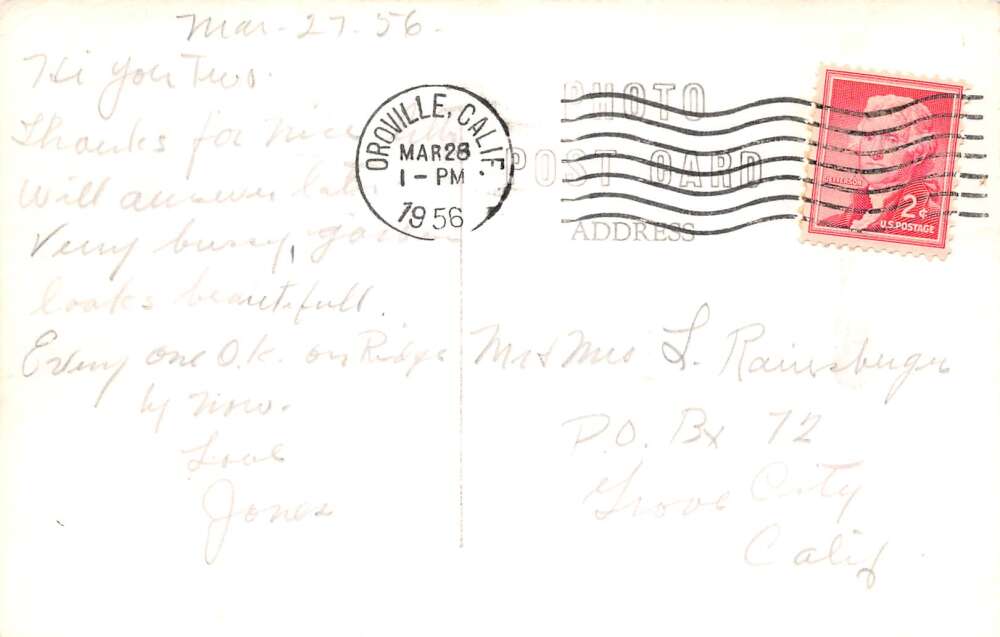 Mar-27-56-
Hi You Two.
Thanks for nice
Will answer
Very bussy,
looks beautifull.
Every one O.K. on Ridge
by now.
Love
Jones
OROVILLE, CALIF.
MAR 28
1-PM
1956
PHOTO
POST CARD
ADDRESS
JEFFERSON
2¢
U.S. POSTAGE
Mr & Mrs L. Rainsburger
P.O. Bx 72
Grove City
Calif